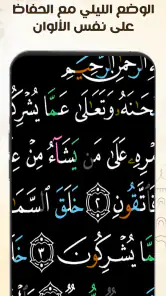 الوضع الليلي مع الحفاظ
على نفس الألوان
ٱلرَّحْمَٰنِ ٱلرَّحِيمِ
حَٰنَهُۥ وَتَعَٰلَىٰ عَمَّا يُشْرِكُ
مْرِهِۦ عَلَىٰ مَن يَشَآءُ مِنْ عِ
فَٱتَّقُونِ ٢ خَلَقَ ٱلسَّمَ
مَّا يُشْرِكُونَ ٣